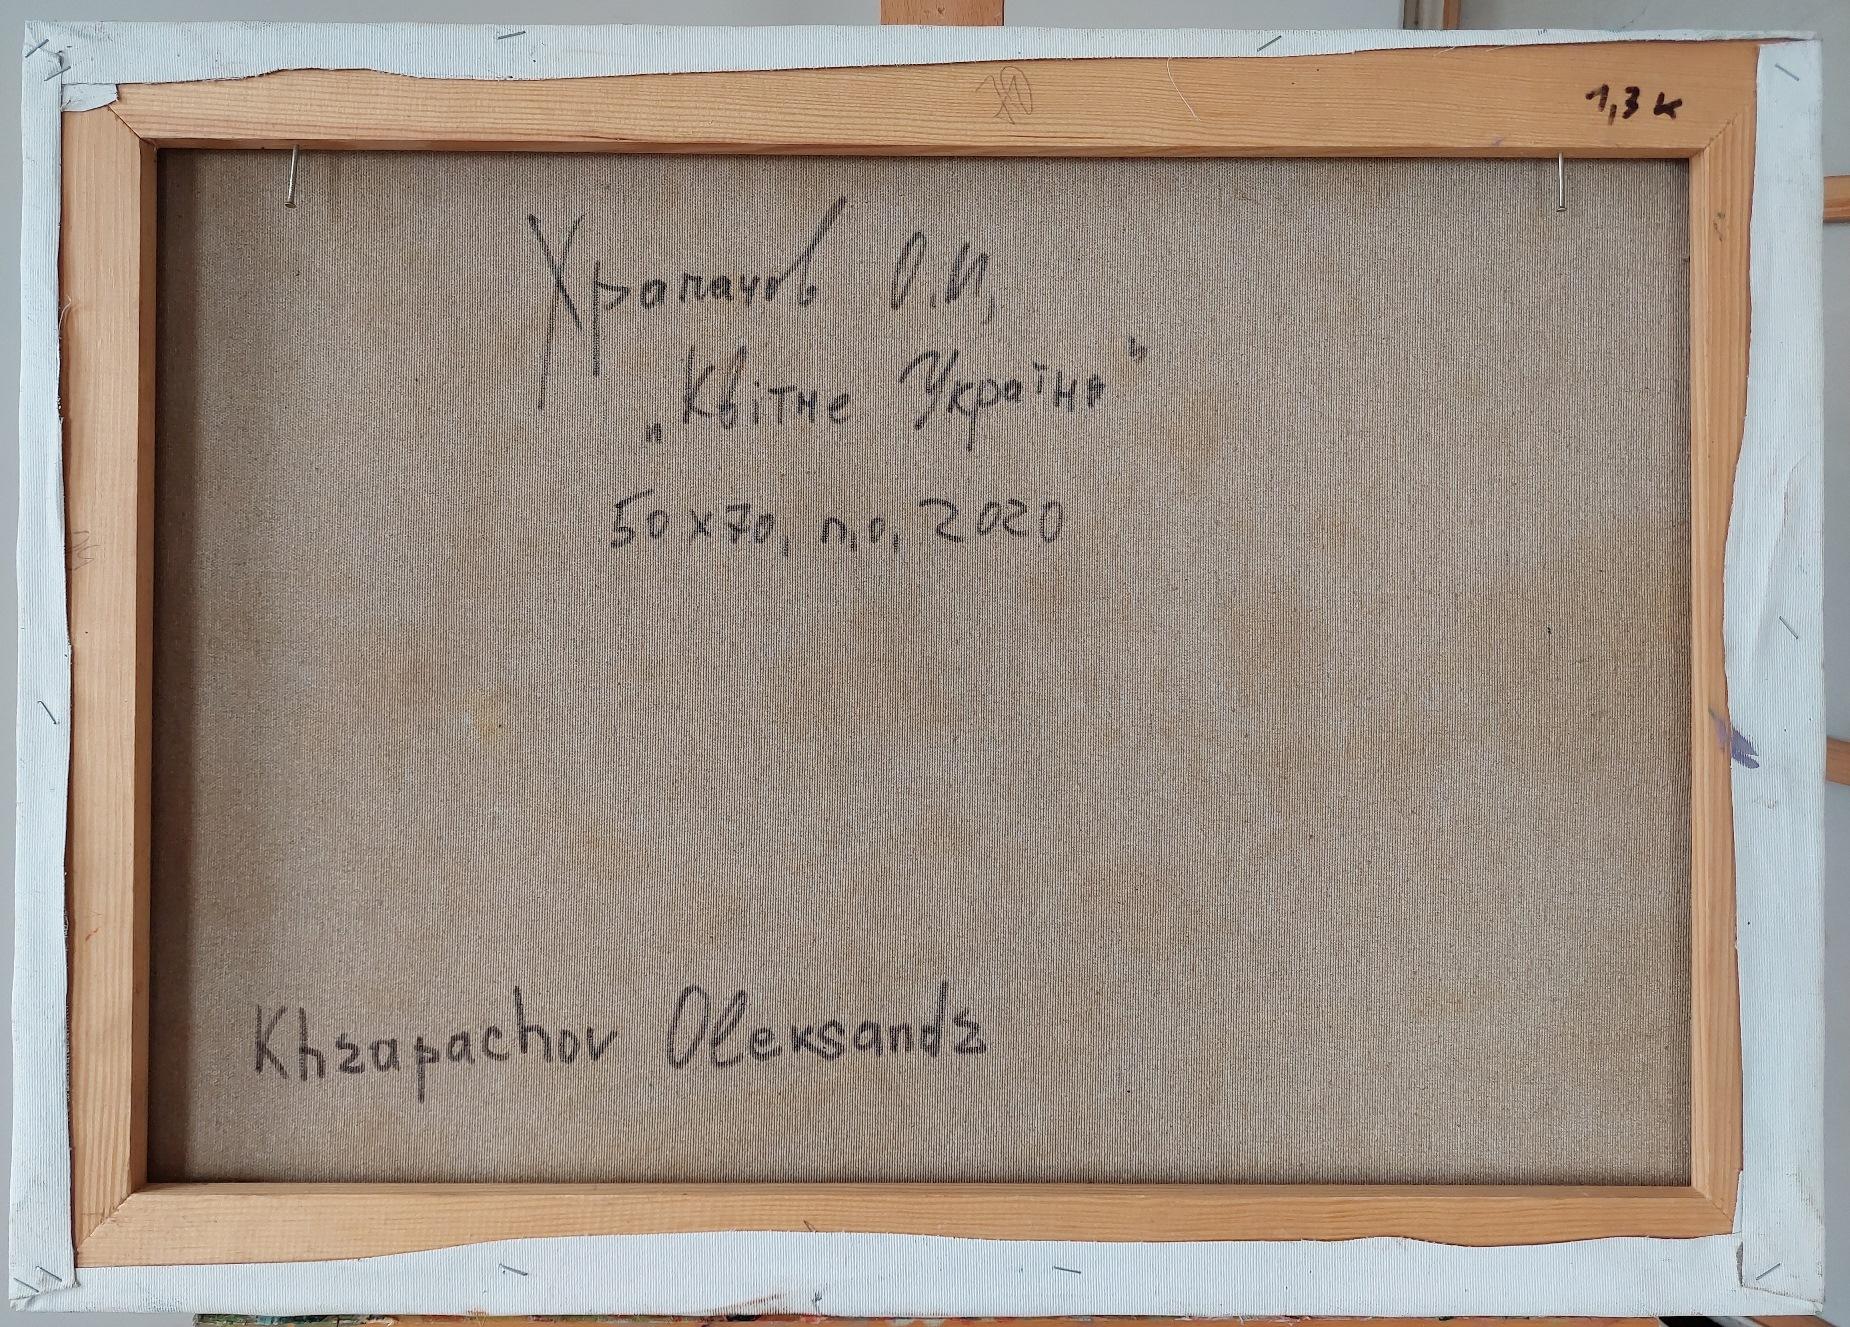 70
1,3 к
Храпачов О.И,
„Квітне Україна"
50x70, п,о, 2020
Khrapachov Oleksandr